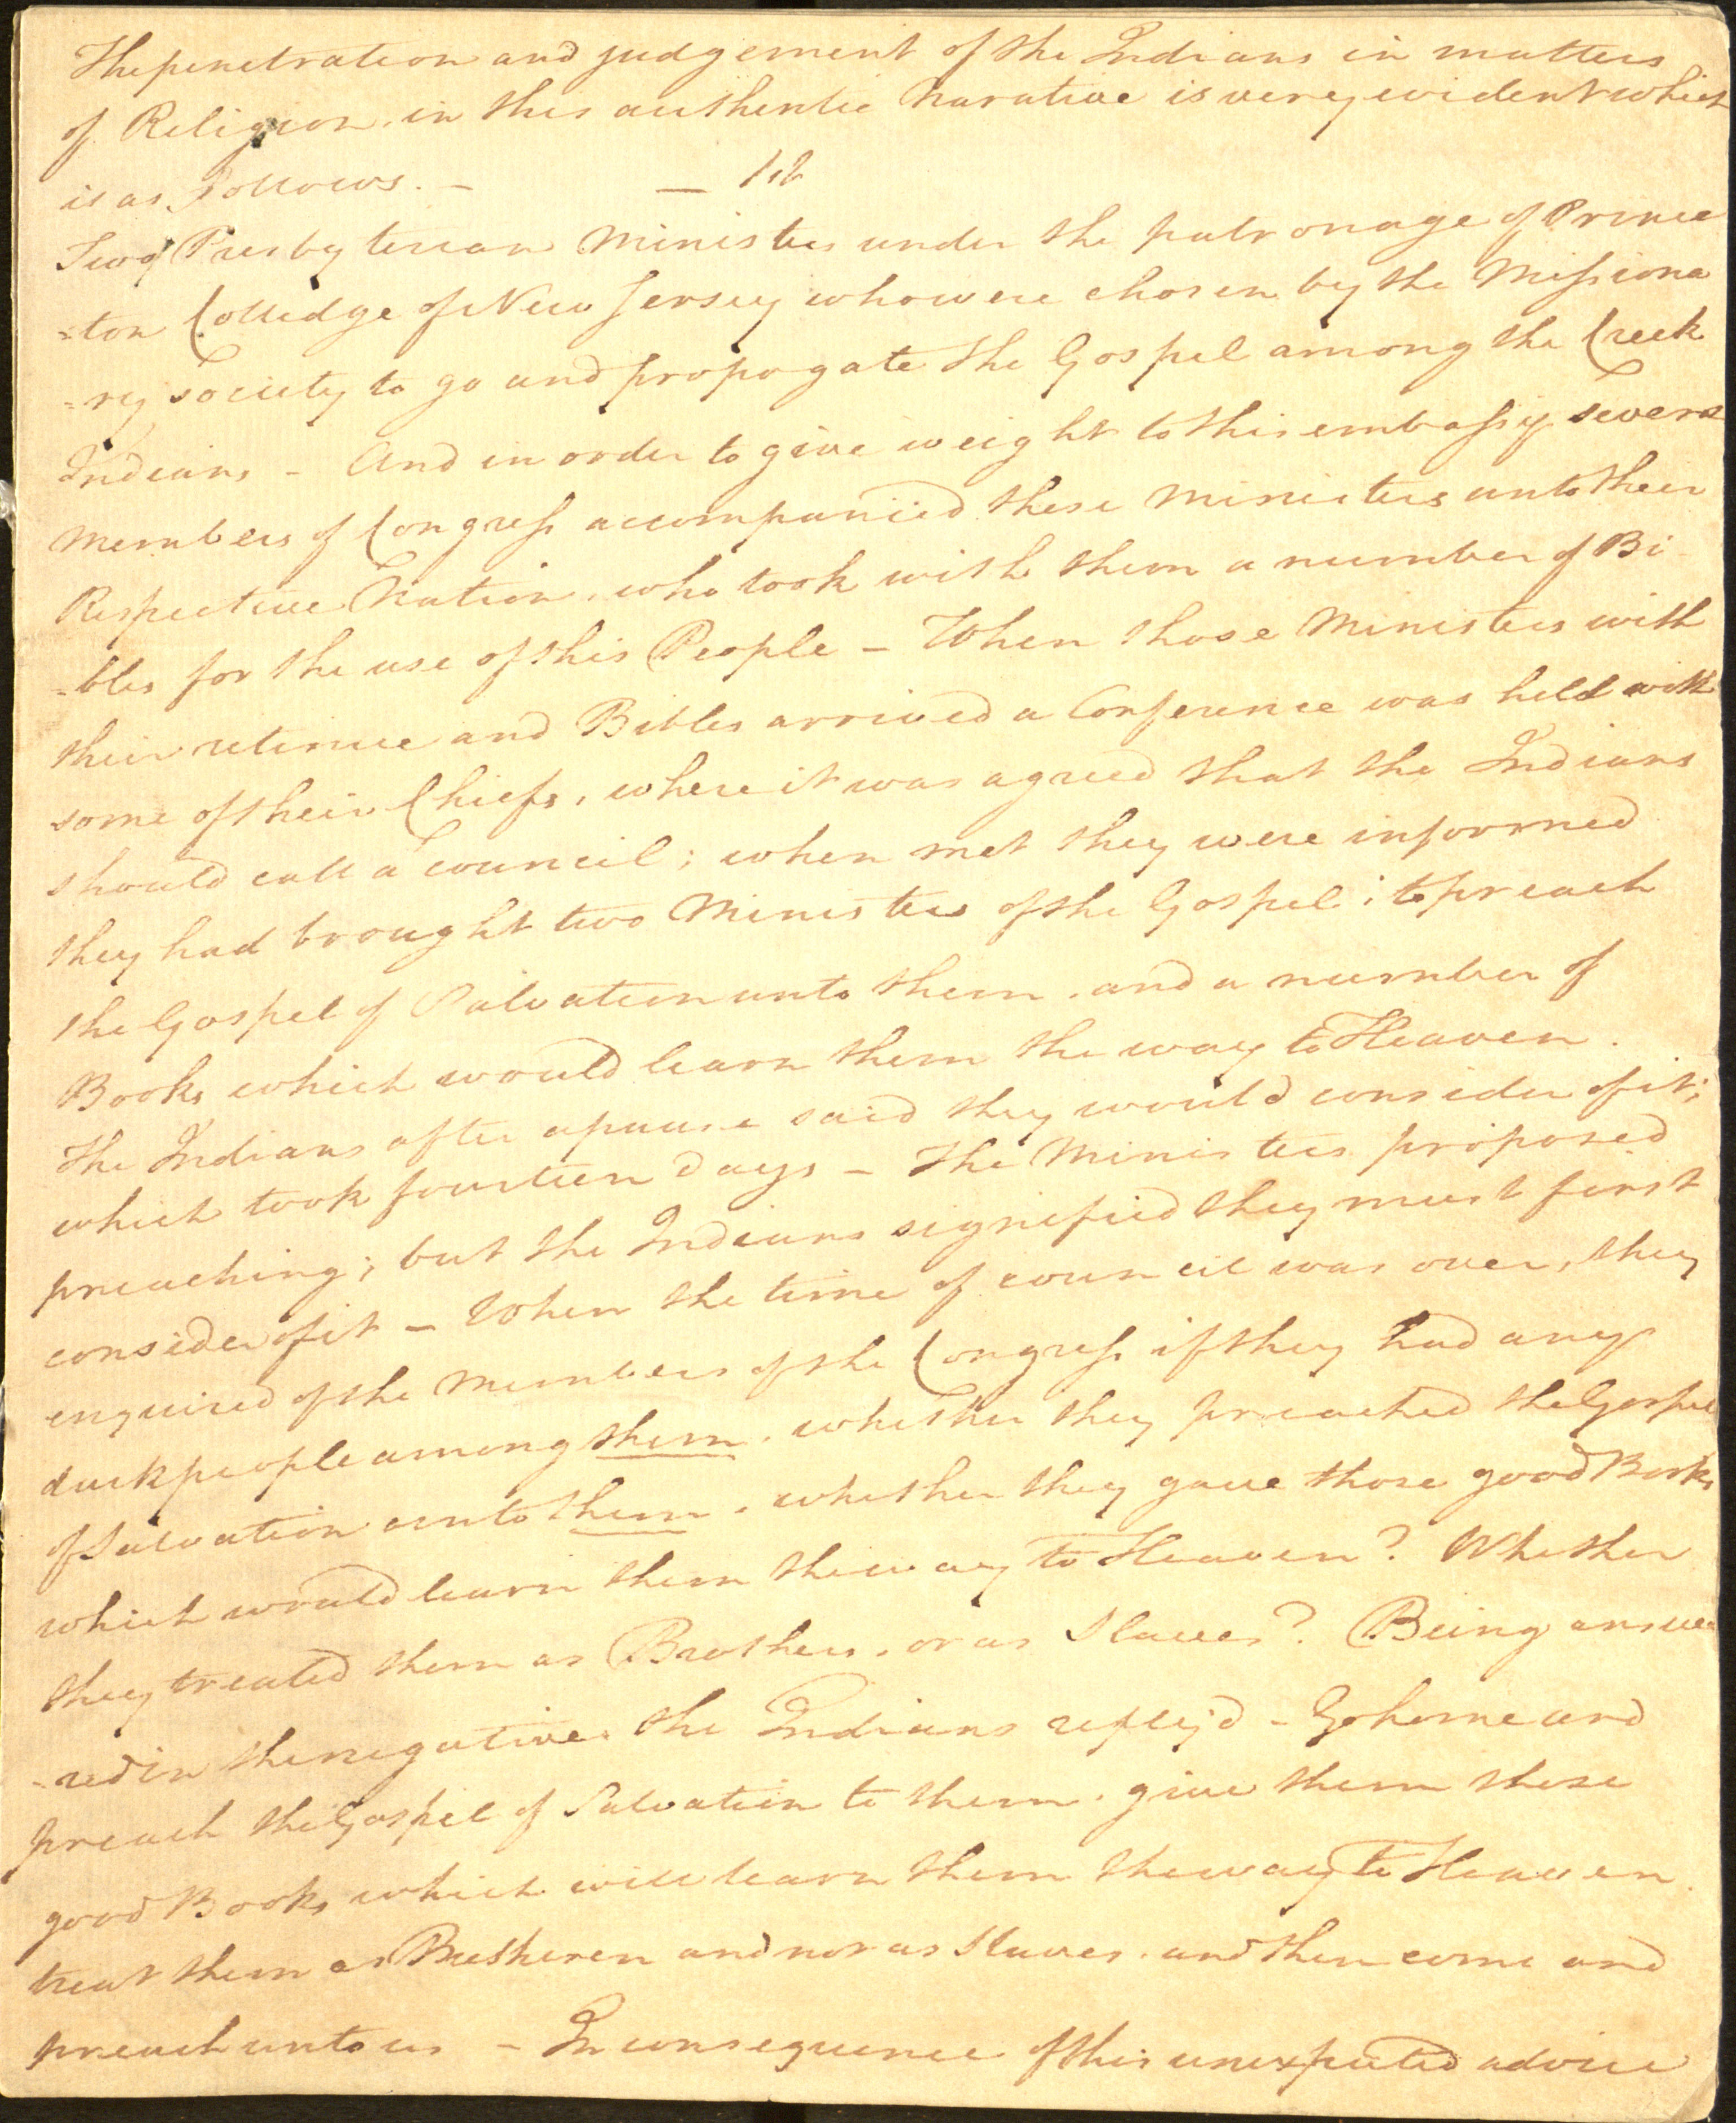 The penetration and judgement of the Indians in matters
of Religion, in this authentic Narative is very evident which
is as follows. - — 1st
Two of Presbyterian Ministers under the patronage of Prince
=ton Colledge of New Jersey who were chosen by the Missiona
=ry society to go and propogate the Gospel among the Creek
Indians - And in order to give weight to this embassy severa
Members of Congress accompanied these Ministers unto their
Respective Nation, who took with them a number of Bi
=bles for the use of this People - When those Ministers with
their retinue and Bibles arrived a Conference was held with
some of their Chiefs, where it was agreed that the Indians
should call a Council; when met they were informed
they had brought two Ministers of the Gospel; to preach
the Gospel of Salvation unto them, and a number of
Books which would learn them the way to Heaven.
The Indians after a pause said they would consider of it;
which took fourteen days - The Ministers proposed
preaching; but the Indians signified they must first
consider of it - When the time of council was over, they
enquired of the Members of the Congress if they had any
dark people among them, whether they preached the Gospel
of Salvation unto them, whether they gave those good Books
which would learn them the way to Heaven? Whether
they treated them as Brothers, or as Slaves? Being answe
=red in the negative, the Indians reply'd - Go home and
preach the Gospel of Salvation to them, give them these
good Books which will learn them the way to Heaven.
treat them as Bretheren and not as Slaves, and then come and
preach unto us - In consequence of this unexpected advice